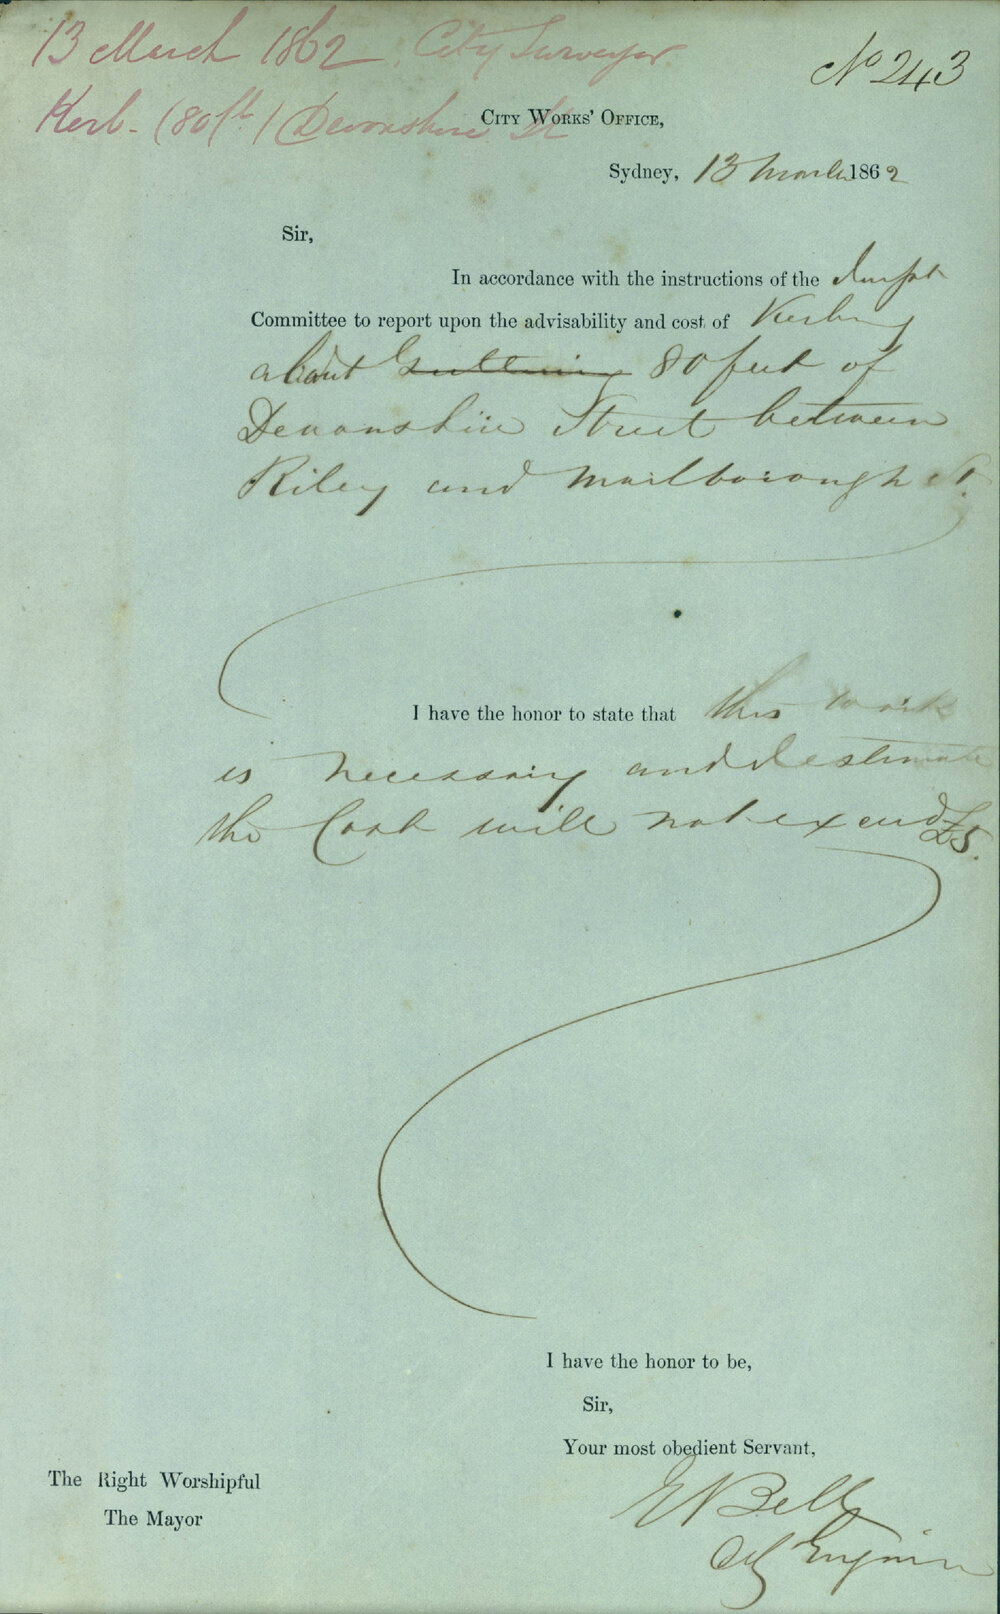 13 March 1862. City Surveyor
No 243
Kerb - (80 ft.) Devonshire St
CITY WORKS' OFFICE,
Sydney, 13 March 1862
Sir,
In accordance with the instructions of the
Committee to report upon the advisability and cost of Kerbing
about Guttering 80 feet of
Devonshire Street between
Riley and Marlborough St.
I have the honor to state that this work
is necessary and I estimate
the Cost will not exceed £5.
I have the honor to be,
Sir,
Your most obedient Servant,
The Right Worshipful
The Mayor
E Bell
City Engineer